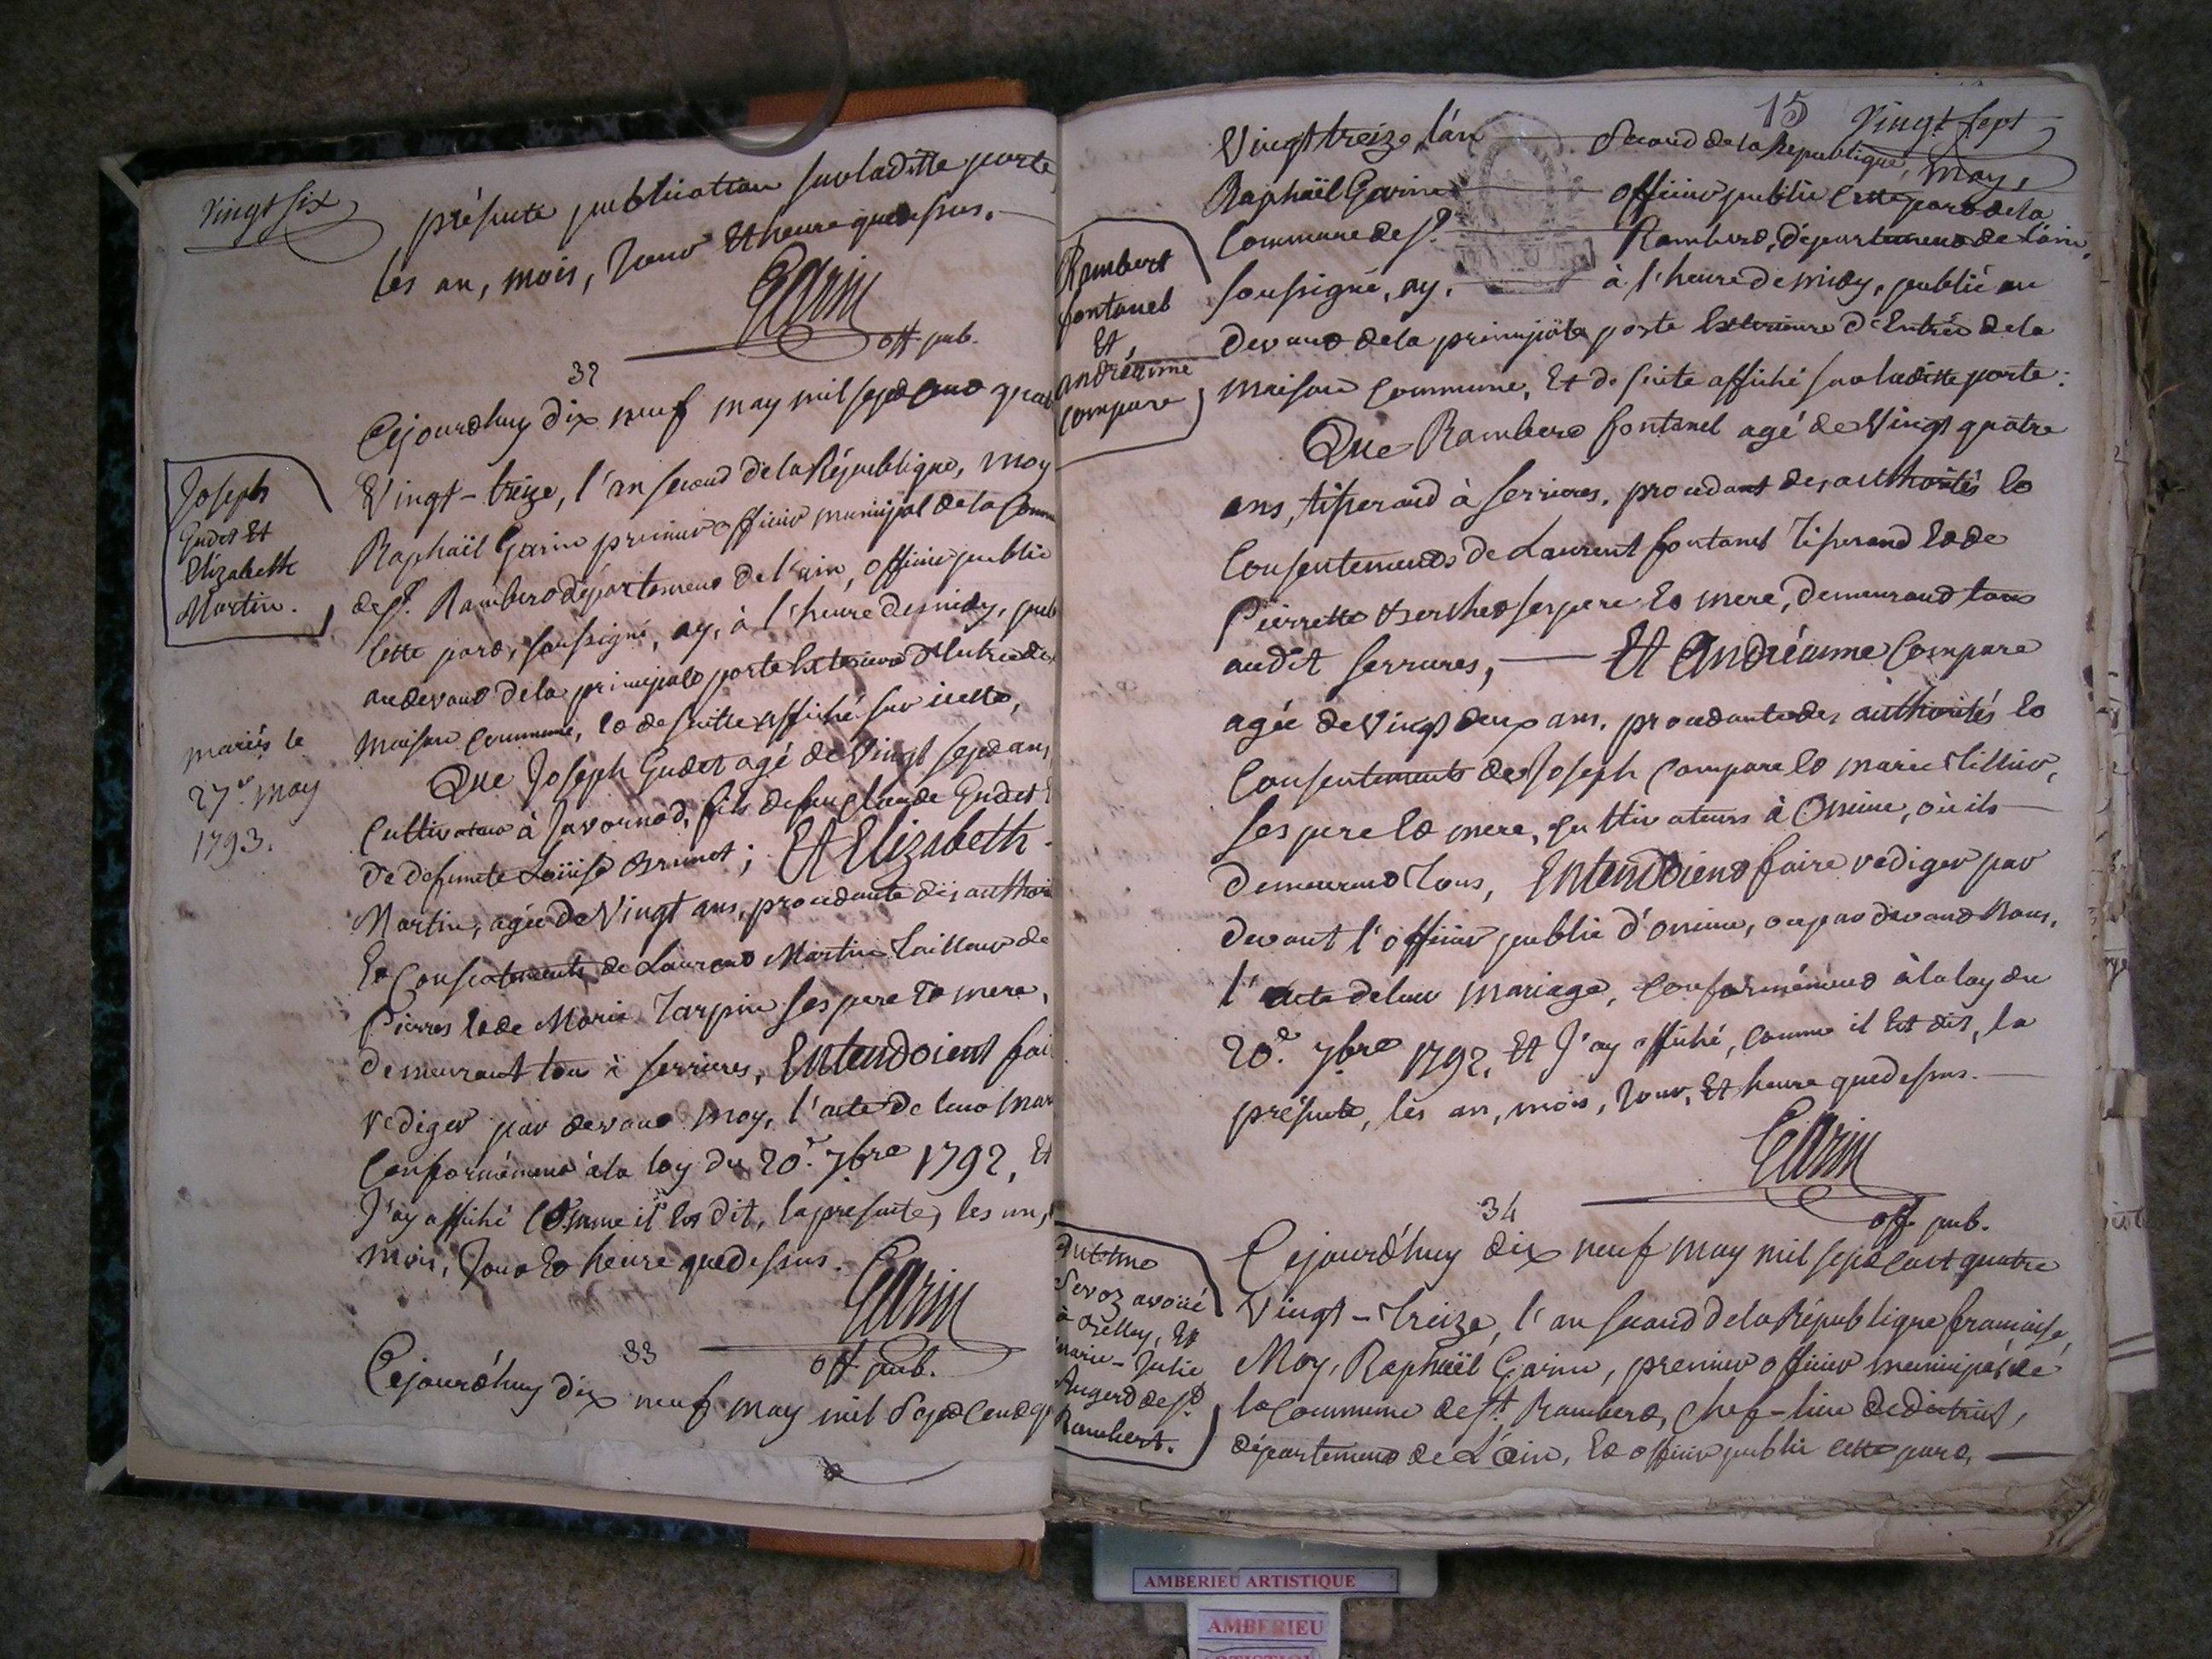 Vingt six
présente publication sur laditte porte
les an, mois, Jour Et heure que dessus.
Garin
off. pub.
32
Cejourdhuy dix neuf may mil sept cent quat
Joseph
Gudet Et
Elizabeth
Martin.
Vingt-treize, l'an second de la République, moy
Raphaïl Garin premier officier municipal de la Comm
de St. Rambert département de l'ain, officier public
cette part, soussigné, ay, à l'heure de midy, pub
au devant de la principale porte Exterieure d'Entrée de
maison commune, Et de suitte affiché sur icelle,
mariés le
27e. may
1793.
Que Joseph Gudet agé de Vingt sept ans,
Cultivateur à Javornod, fils de feu Claude Gudet E
De defunete Loüise Brunet; Et Elizabeth
Martin, agée de Vingt ans, procedante des author
Et Consentements de Laurent Martin Tailleur de
Pierres Et de Marie Tarpin ses pere Et mere,
demeurant tous à serrieres, Entendoient fai
rédiger par devant moy, l'acte de leur mar
Conformément à la loy du 20e. 7bre 1792, Et
J'ay affiché comme il Est dit, la présente, les an,
mois, Jour Et heure que dessus.
Garin
off. pub.
33
Cejourd'huy dix neuf may mil Sept Cent q
15
Vingt sept
Vingt treize, l'an Second de la République, moy,
Raphaïl Garin officier public cette part de la
Commune de St. Rambert, département de l'ain,
soussigné, ay, à l'heure de midy, publié au
Rambert
fontanel
Et
andréanne
Compare
devant de la principale porte Exterieure d'Entrée de la
maison Commune, Et de suite affiché sur laditte porte:
Que Rambert fontanel agé de Vingt quatre
ans, tisserand à serrieres, procedant des authorités Et
Consentements de Laurent fontanel Tisserand Et de
Pierrette Berthet ses pere Et mere, demeurand tous
audit serrieres, Et Andréanne Compare
agée de Vingt deux ans, procedante des authorités Et
Consentements de Joseph Compare Et marie Tillier,
ses pere Et mere, cultivateurs à Onime, où ils
demeurent Tous, Entendoient faire rediger par
devant l'officier public d'onime, ou par devant Nous,
l'acte de leur mariage, conformément à la loy du
20e. 7bre 1792, Et J'ay affiché, comme il Est dit, la
présente, les an, mois, Jour, Et heure que dessus.
Garin
off. pub.
34
Cejourd'huy dix neuf may mil sept cent quatre
Anthme
Sevoz avoüé
à Belley, Et
marie-Julie
Augerd de St.
Rambert.
Vingt-Treize, l'an second de la République française,
Moy, Raphaïl Garin, premier officier municipal de
la Commune de St. Rambert, chef-lieu de district,
département de L'ain, Et officier public cette part,
AMBERIEU ARTISTIQUE
AMBERIEU
ARTISTIQUE